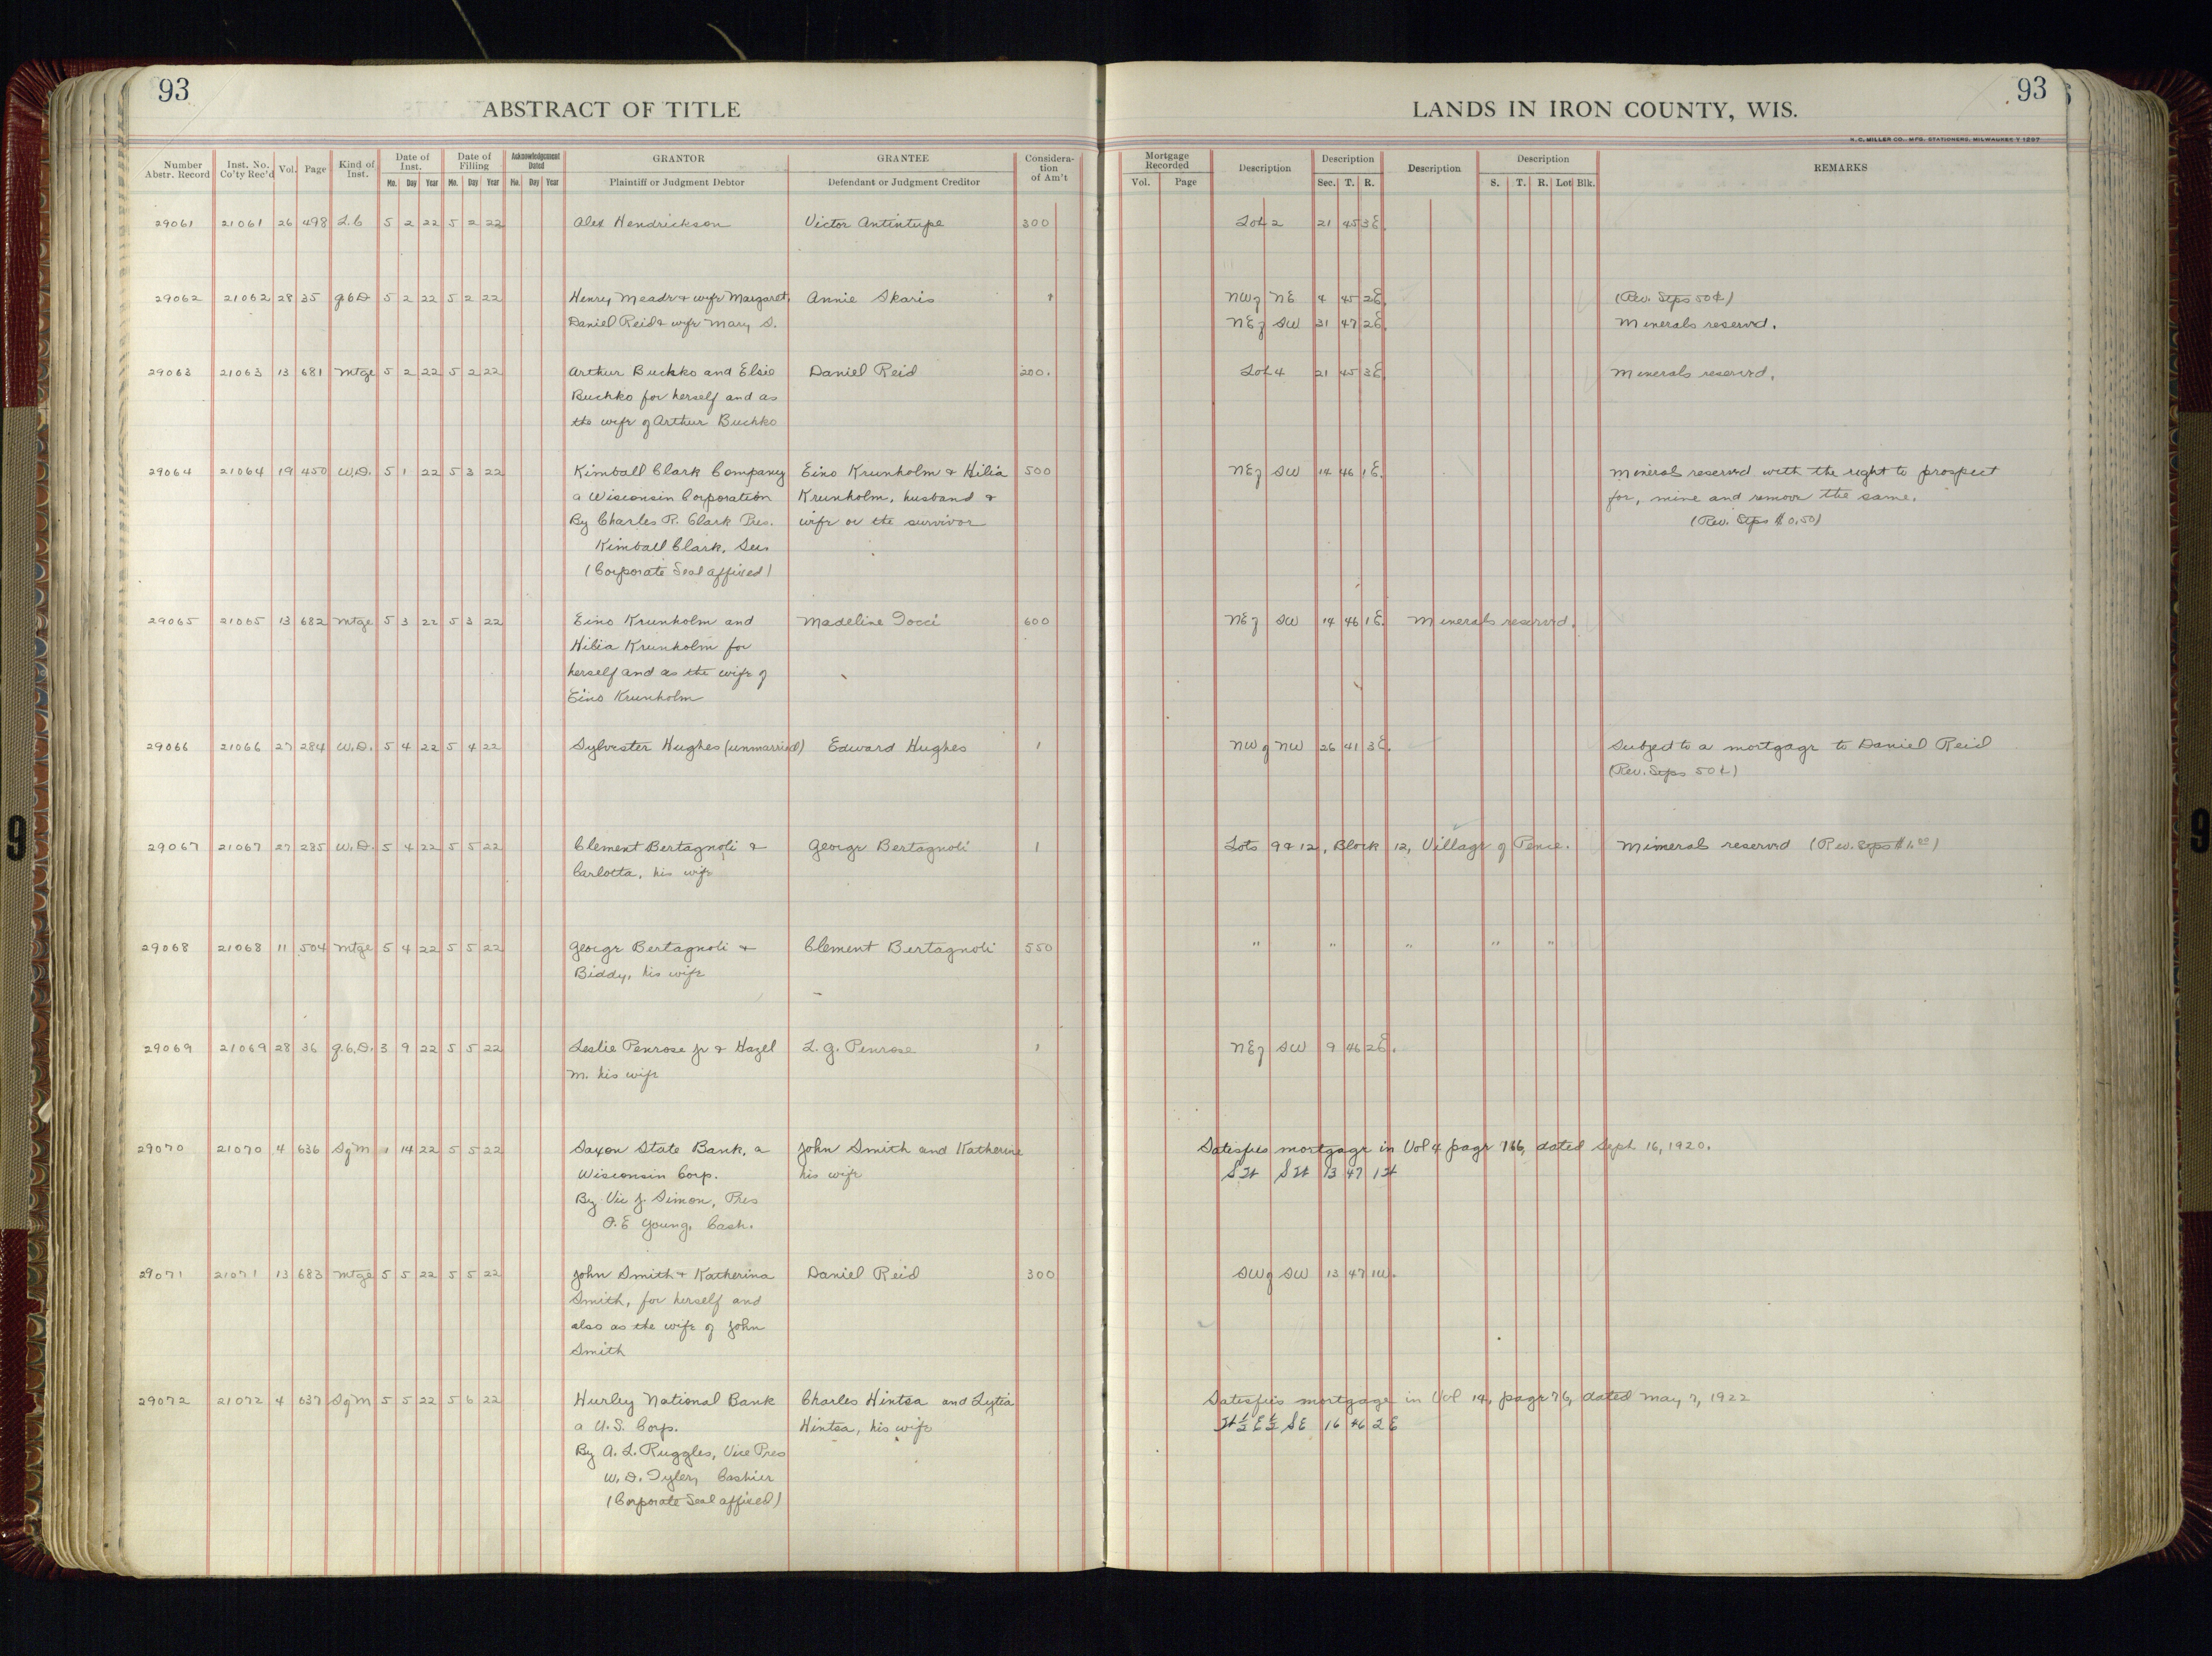 93
ABSTRACT OF TITLE
LANDS IN IRON COUNTY, WIS.
93
H. C. MILLER CO., MFG. STATIONERS, MILWAUKEE
Number Abstr. Record | Inst. No. Co'ty Rec'd | Vol. | Page | Kind of Inst. | Date of Inst. Mo. Day Year | Date of Filling Mo. Day Year | Acknowledgement Dated Mo. Day Year | GRANTOR Plaintiff or Judgment Debtor | GRANTEE Defendant or Judgment Creditor | Consideration of Am't | Mortgage Recorded Vol. Page | Description | Description Sec. T. R. | Description | Description S. T. R. Lot Blk. | REMARKS
29061 21061 26 498 L.C 5 2 22 5 2 22 Alex Hendrickson Victor Antintupe 300 Lot 2 21 45 3E.
29062 21062 28 35 Q.C.D 5 2 22 5 2 22 Henry Meade & wife Margaret, Annie Skaris 1 NW of NE 4 45 2E. (Rev. Stps 50¢)
Daniel Reid & wife Mary S. NE of SW 31 47 2E. Minerals reserved.
29063 21063 13 681 Mtge 5 2 22 5 2 22 Arthur Buchko and Elsie Daniel Reid 200. Lot 4 21 45 3E. Minerals reserved.
Buchko for herself and as
the wife of Arthur Buchko
29064 21064 19 450 W.D. 5 1 22 5 3 22 Kimball Clark Company Eino Krunholm & Hilia 500 NE of SW 14 46 1E. Mineral reserved with the right to prospect
a Wisconsin Corporation Krunholm, husband & for, mine and remove the same.
By Charles R. Clark Pres. wife or the survivor (Rev. Stps $0.50)
Kimball Clark, Sec.
(Corporate Seal affixed)
29065 21065 13 682 Mtge 5 3 22 5 3 22 Eino Krunholm and Madeline Tocci 600 NE of SW 14 46 1E. Minerals reserved.
Hilia Krunholm for
herself and as the wife of
Eino Krunholm
29066 21066 27 284 W.D. 5 4 22 5 4 22 Sylvester Hughes (unmarried) Edward Hughes 1 NW of NW 26 41 3E. Subject to a mortgage to Daniel Reid
(Rev. Stps 50¢)
29067 21067 27 285 W.D. 5 4 22 5 5 22 Clement Bertagnoli & George Bertagnoli 1 Lots 9 & 12, Block 12, Village of Pence. Mimerals reserved (Rev. Stps $1.00)
Carlotta, his wife
29068 21068 11 504 Mtge 5 4 22 5 5 22 George Bertagnoli & Clement Bertagnoli 550 " " " " "
Biddy, his wife
29069 21069 28 36 Q.C.D. 3 9 22 5 5 22 Leslie Penrose Jr & Hazel L. G. Penrose 1 NE of SW 9 46 2E.
M. his wife
29070 21070 4 636 S of M 1 14 22 5 5 22 Saxon State Bank, a John Smith and Katherine Satisfies mortgage in Vol 4 page 166, dated Sept 16, 1920.
Wisconsin Corp. his wife SW SW 13 47 1W
By Vic J. Simon, Pres
O. E Young, Cash.
29071 21071 13 683 Mtge 5 5 22 5 5 22 John Smith & Katherina Daniel Reid 300 SW of SW 13 47 1W.
Smith, for herself and
also as the wife of John
Smith
29072 21072 4 637 S of M 5 5 22 5 6 22 Hurley National Bank Charles Hintsa and Lytia Satisfies mortgage in Vol 14, page 76, dated May 7, 1922
a U.S. Corp. Hintsa, his wife W½ E½ SE 16 46 2E
By A. L. Ruggles, Vice Pres
W. D. Tyler, Cashier
(Corporate Seal affixed)
9
9